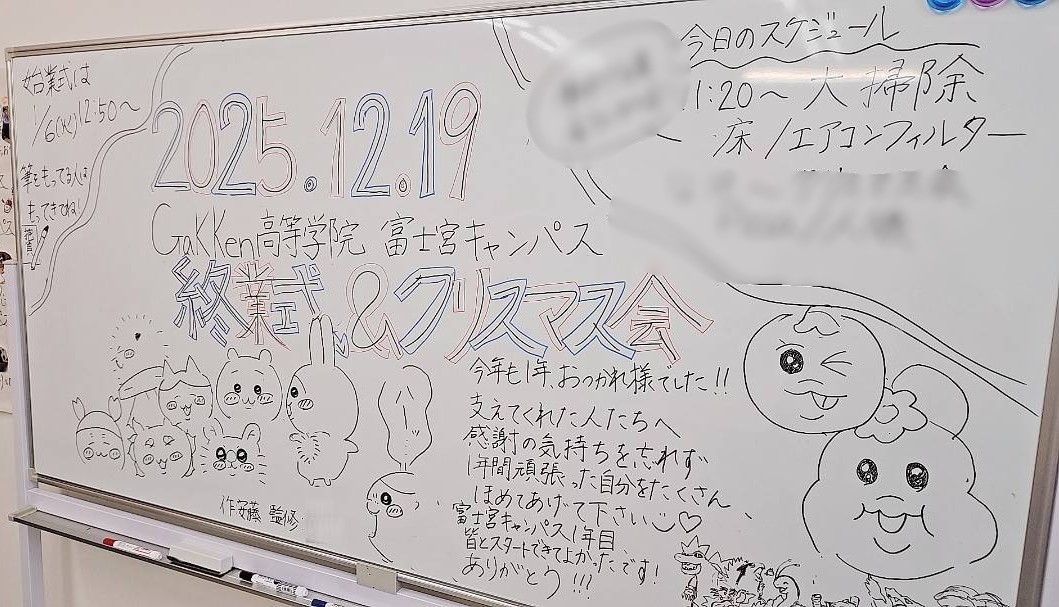 始業式は
1/6(火)12:50～
筆をもってる人は
もってきてね!
2025.12.19
GaKKen高等学院 富士宮キャンパス
終業式&クリスマス会
今日のスケジュール
11:20～大掃除
床/エアコンフィルター
今年も1年、おつかれ様でした!!
支えてくれた人たちへ
感謝の気持ちを忘れず
1年間頑張った自分をたくさん
ほめてあげて下さい♡
富士宮キャンパス1年目
皆とスタートできてよかったです!
ありがとう!!!
作安藤 監修